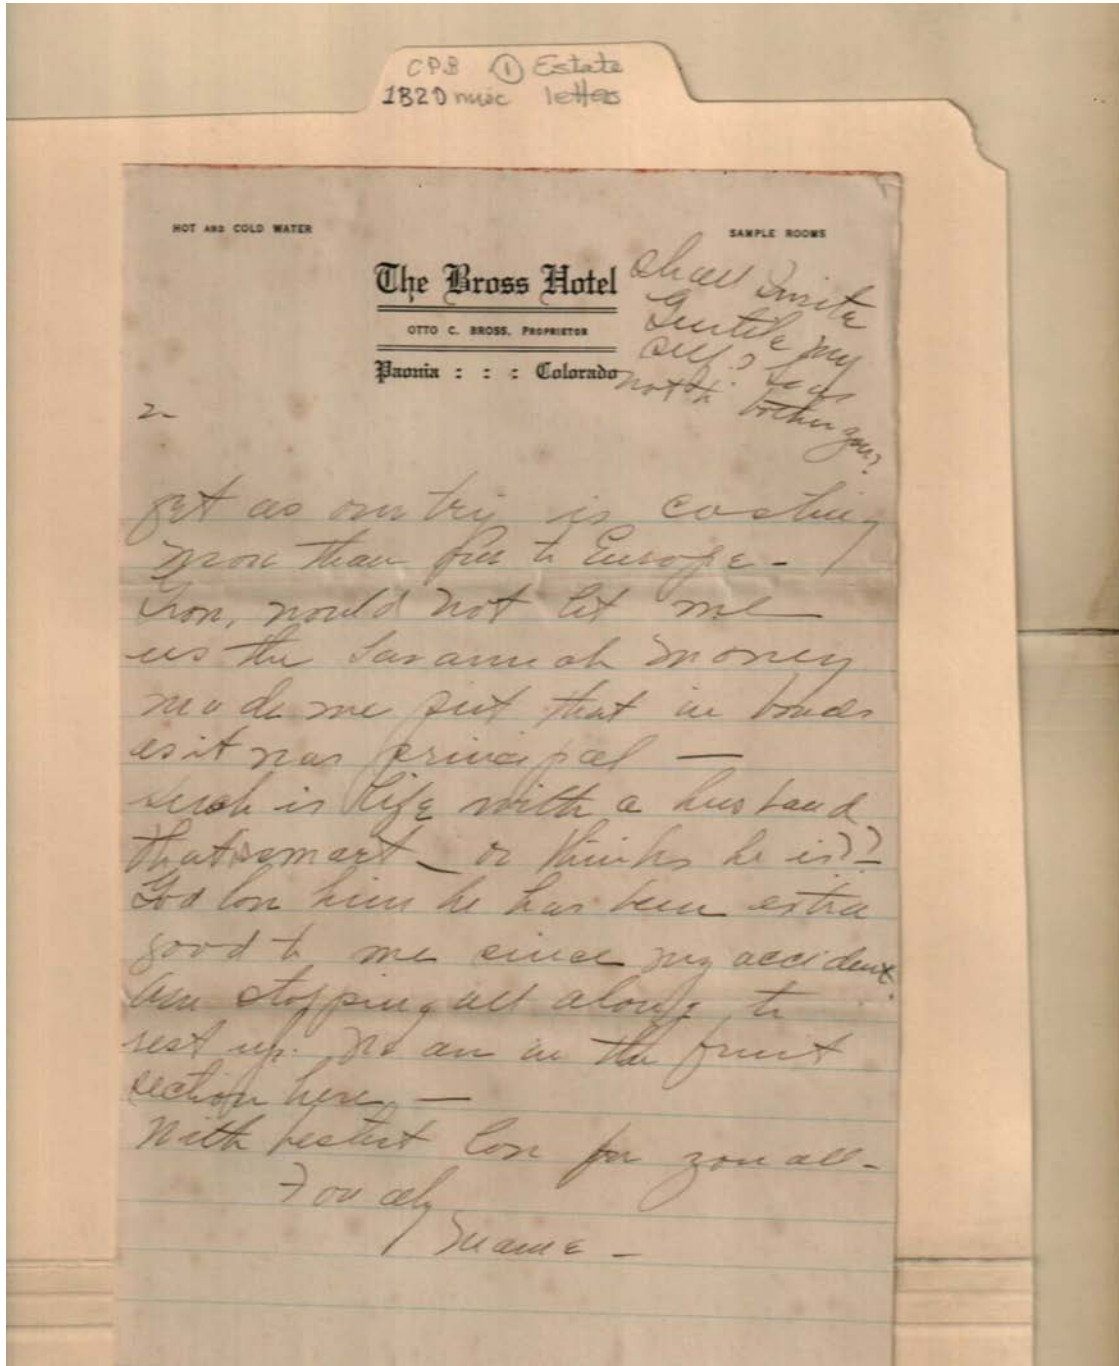 CPB ① Estate
1820 misc letters
HOT AND COLD WATER
SAMPLE ROOMS
The Bross Hotel
OTTO C. BROSS, PROPRIETOR
Paonia : : : Colorado
Shall I write
Gentile my
self? so as
not to bother you?
2-
get as our trip is costing
more than few to Europe -
would not let me
us the Savannah money
made me put that in bonds
as it was principal —
such is life with a husband
that smart - or thinks he is??-
God love him he has been extra
good to me since my accident.
Am stopping all along to
rest up. We are in the fruit
section here —
With bestest love for you all -
Fondly
Mame -